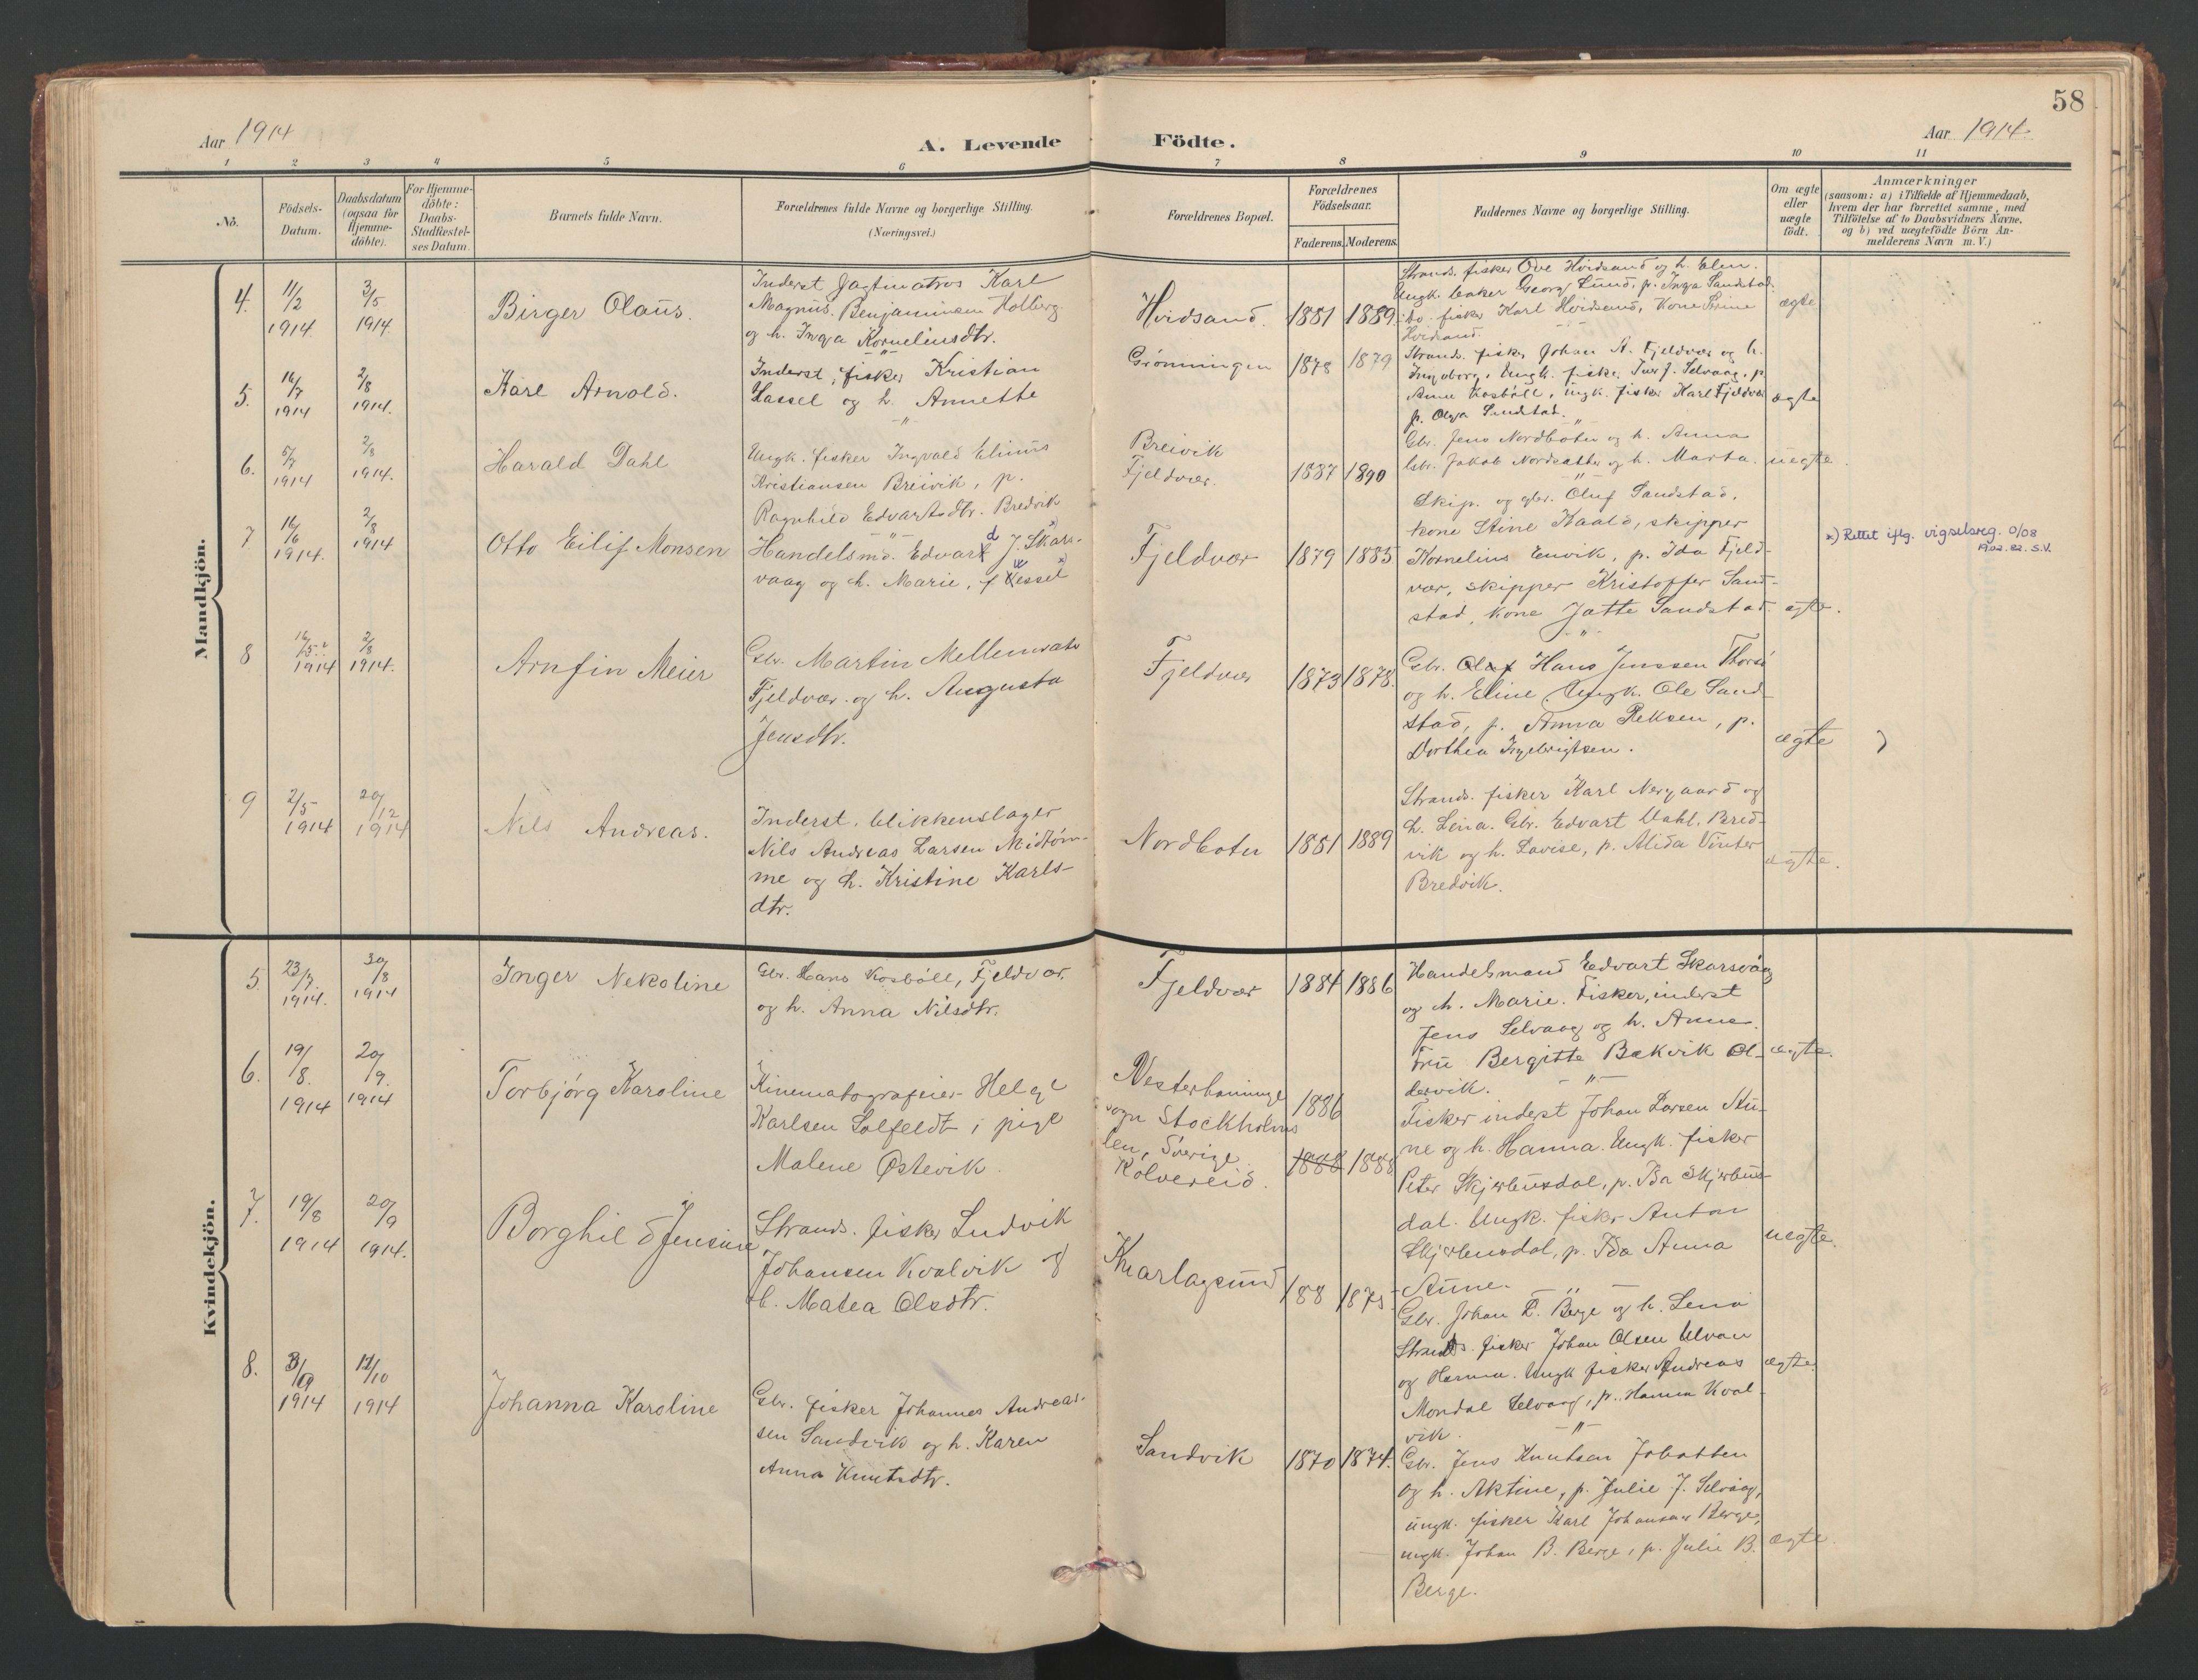 58
Aar 1914
A. Levende Födte.
Aar 1914
1 2 3 4 5 6 7 8 9 10 11
No.
Födsels-Datum.
Daabsdatum (ogsaa for Hjemme-döbte).
For Hjemme-döbte: Daabs-Stadfæstel-ses Datum.
Barnets fulde Navn.
Forældrenes fulde Navne og borgerlige Stilling.
(Næringsvei.)
Forældrenes Bopæl.
Forældrenes Födselsaar.
Faderens. Moderens.
Faddernes Navne og borgerlige Stilling.
Om ægte eller uægte födt.
Anmærkninger
(saasom: a) i Tilfælde af Hjemmedaab, hvem der har forrettet samme, med Tilföielse af to Daabsvidners Navne, og b) ved uægtefödte Börn An-melderens Navn m. V.)
Mandkjön.
4. 11/2 1914 3/5 1914.
Birger Olaus.
Inderst Jagtmatros Karl
Magnus Benjaminsen Holberg
og h. Inga Korneliusdtr.
Hvidsand. 1881 1889
Strands. fisker Ove Hvidsand og h. Elen.
Ungk. baker Georg Lund, p. Inga Sandstad.
fisker Karl Hvidsand, Kone
Hvidsand.
ægte
5. 16/7 1914 2/8 1914.
Kåre Arnold.
Inderst, fisker Kristian
Hassel og h. Annette
Grønningen 1878 1879
Strands. fisker Johan A. Fjeldvær og h.
Ingeborg, Ungk. fisker Iver J. Selvaag, p.
Anna Kosböll, ungk. fisker Karl Fjeldvær
p. Olga Sandstad.
ægte
6. 5/7 1914 2/8 1914.
Harald Dahl
Ungk. fisker Ingvald Elinus
Kristiansen Breivik, p.
Ragnhild Edvartsdtr. Bredvik
Breivik
Fjeldvær.
1887 1890
Gbr. Jens Nordbotn og h. Anna
Gbr. Jakob og h. Marta.
uegte.
7 16/6 1914. 2/8 1914
Otto Eilif Monsen
Handelsmd. Edvard J. Skars-
vaag og h. Marie, f. Wessel x)
Fjeldvær 1879 1885
Skip. og gbr. Oluf Sandstad,
kone Stine Kaald, skipper
Kornelius Envik, p. Ida Fjeld-
vær, skipper Kristoffer Sand-
stad, kone Jatte Sandstad.
ægte.
x) Rettet iflg. vigselsreg. 0/08
1902.82. S.V.
8 16/5 1914 2/8 1914.
Arnfin Meier
Gbr. Martin
Fjeldvær og h. Augusta
Jensdtr.
Fjeldvær 1873 1878.
Gbr. Hans Jenssen
og h. Eline. Ungk. Ole Sand-
stad, p. Anna Reksen, p.
Dorthea Ingebrigtsen.
ægte
9 2/5 1914 20/12 1914
Nils Andreas.
Inderst. blikkenslager
Nils Andreas Larsen Midtöm-
me og h. Kristine Karls-
dtr.
Nordbotn 1881 1889
Strands. fisker Karl Nergaard og
h. Lina. Gbr. Edvart Dahl. Bred-
vik og h. Lovise, p. Alida Vinter
Bredvik.
ægte.
Kvindekjön.
5. 23/7. 1914. 30/8 1914
Inger Nekoline
Gbr. Hans Kosböll, Fjeldvær.
og h. Anna Nilsdtr.
Fjeldvær 1884 1886
Handelsmand Edvart Skarsvåg
og h. Marie. Fisker, inderst
Jens Selvaag og h. Anna.
Fru Bergitte Bækvik Ol-
dervik.
ægte.
6. 19/8. 1914 20/9. 1914
Torbjörg Karoline
Kinematografeier Helge
Karlsen Solfeldt, pige
Malene Østevik.
Vesterhaninge
sogn Stockholms
len, Sverige
Kolvereid.
1886
1888 1888
Fisker inderst Johan Larsen Au-
ne og h. Hanna. Ungk. fisker
Peter Skjerbusdal, p. Ida Skjerbus-
dal. Ungk. fisker Anton
Skjerbusdal, p. Ida Anna
Aune.
uegte.
7. 19/8 1914 20/9 1914.
Borghild Jensine
Strands. fisker Ludvik
Johansen Kvalvik og
h. Matea Olsdtr.
Knarlagsund 188 1875
Gbr. Johan E. Berge og h. Lena
Strands. fisker Johan Olsen Ulvan
og Hanna. Ungk fisker Andreas
Mondal Selvaag, p. Hanna Kval-
vik.
ægte.
8. 3/9 1914 11/10 1914
Johanna Karoline
Gbr. fisker Johannes Andreas-
sen Sandvik og h. Karen
Anna Knutsdtr.
Sandvik 1870 1874.
Gbr. Jens Knutsen Jobotten
og h. Aktine, p. Julie J. Selvåag,
ungk. fisker Karl Johansen Berge,
ungk. Johan B. Berge, p. Julie B.
Berge.
ægte.